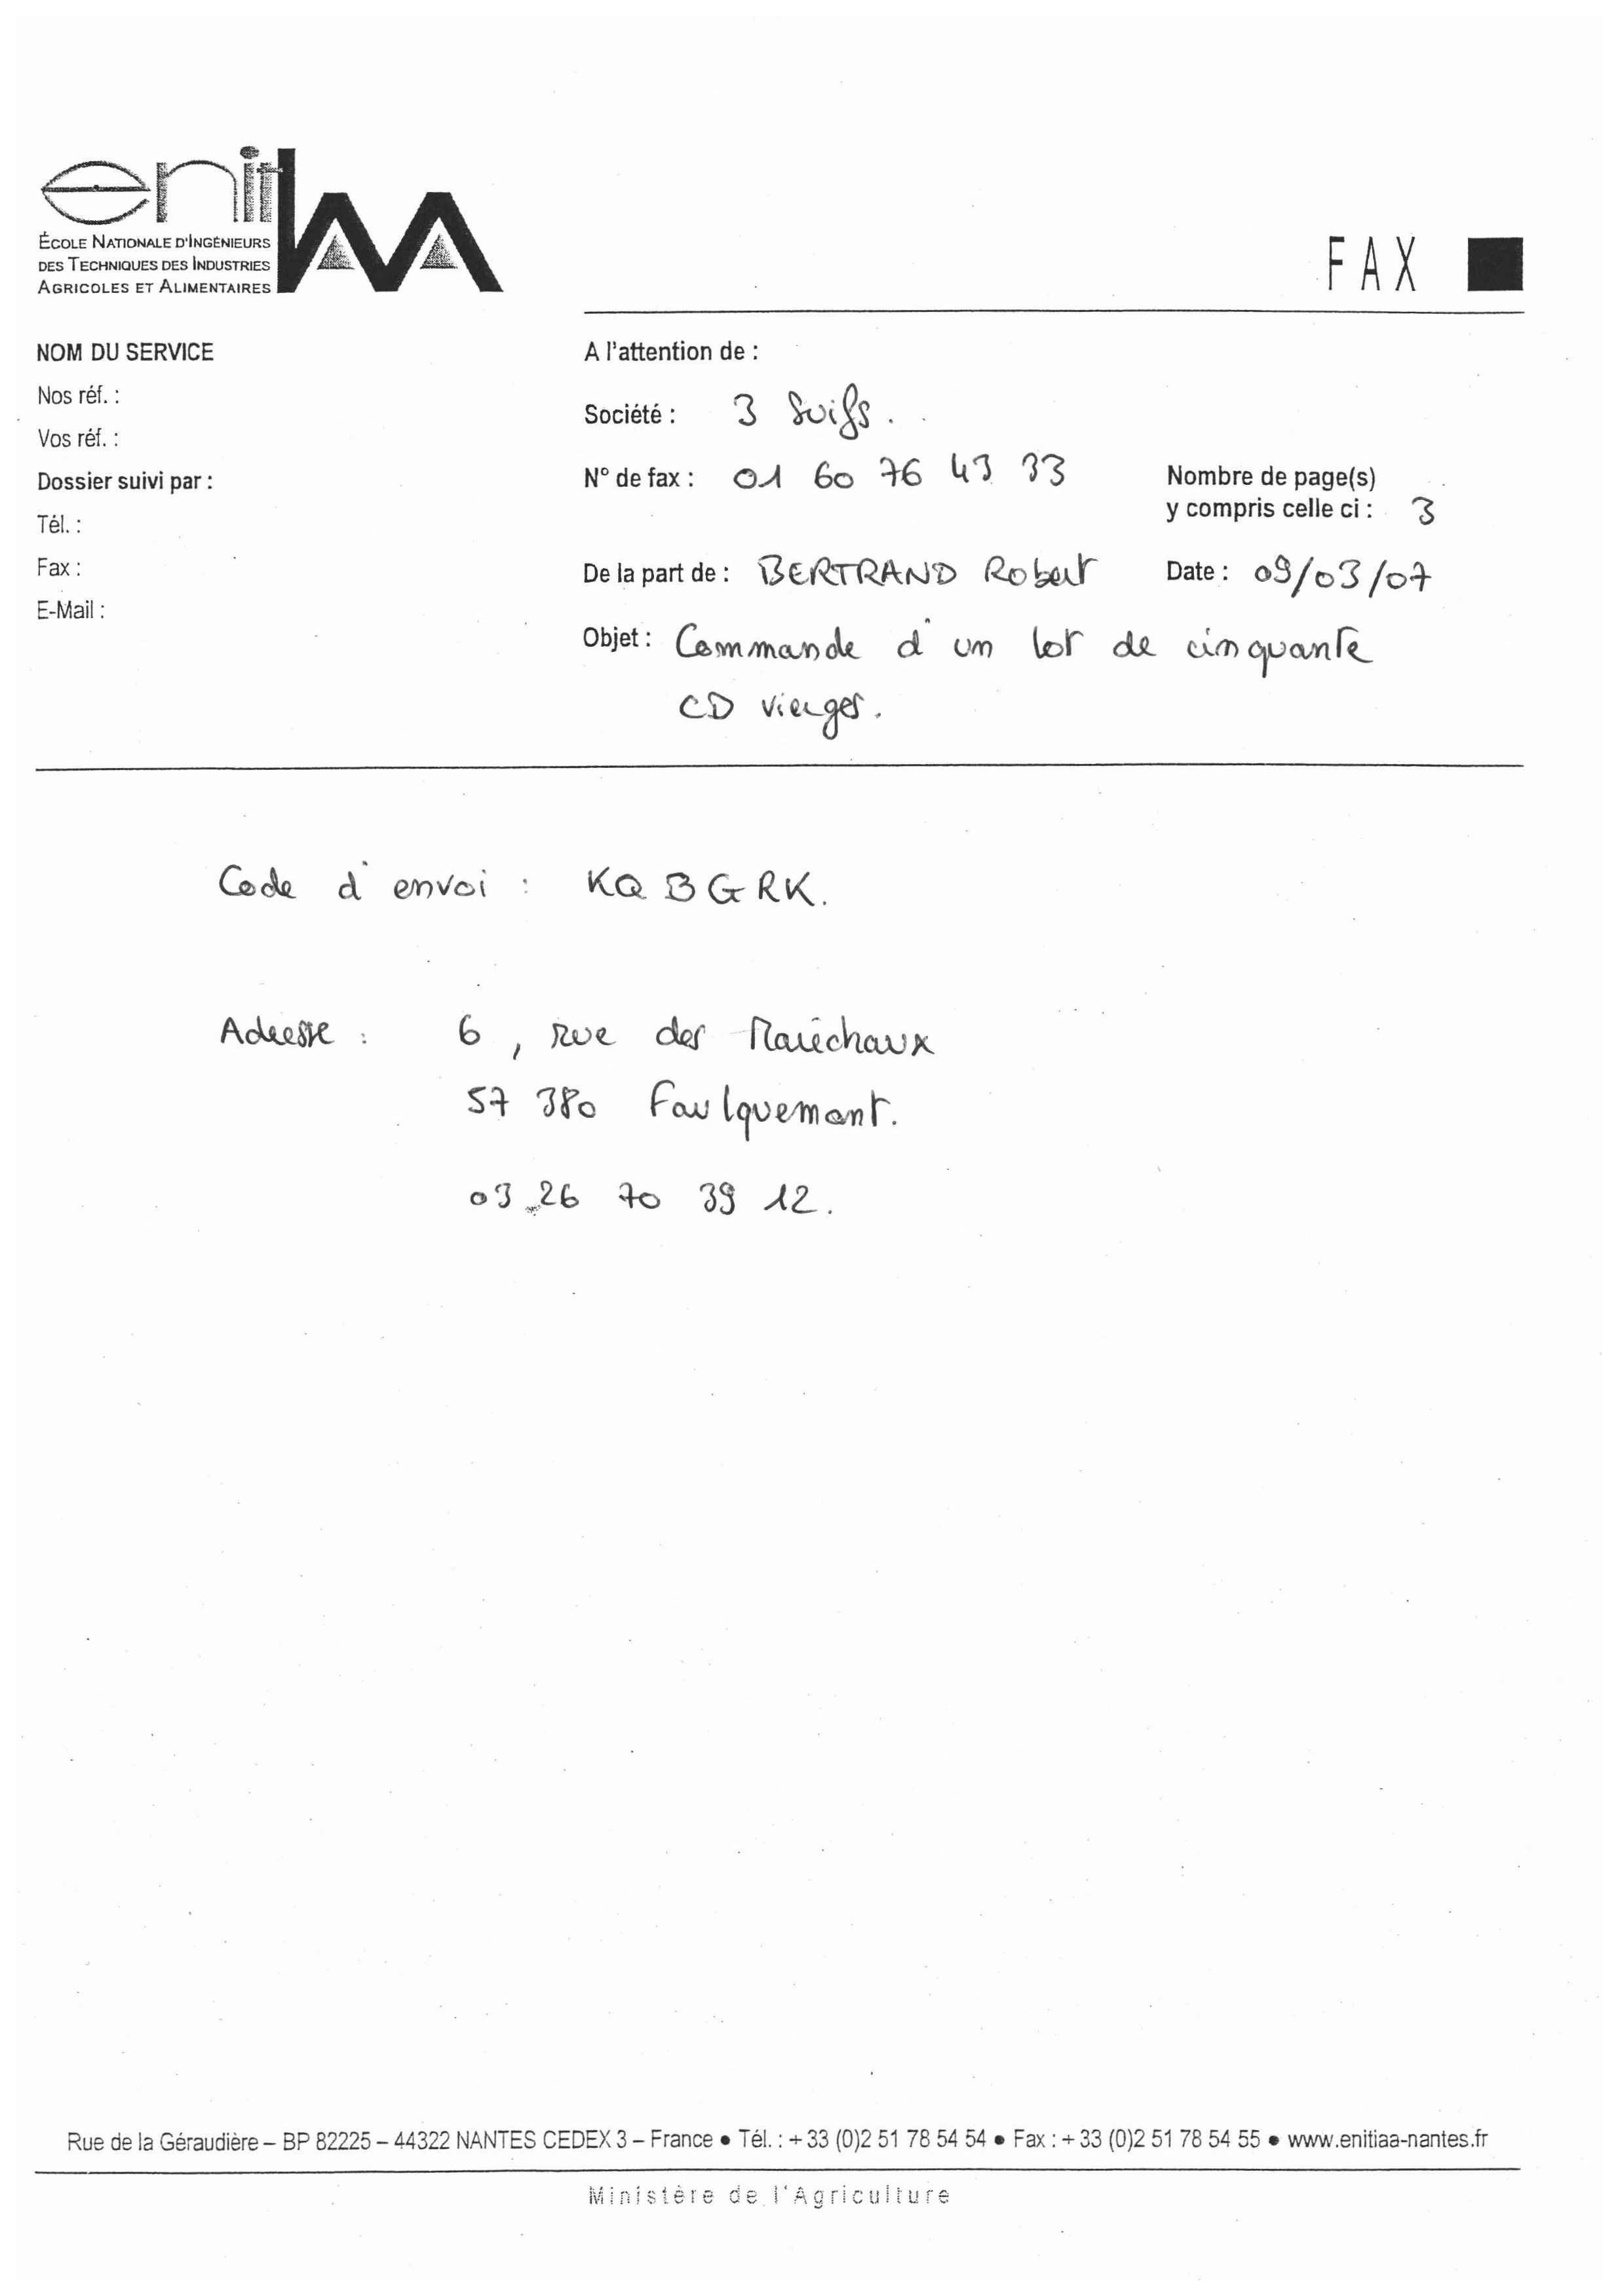 enitiAA
ÉCOLE NATIONALE D'INGÉNIEURS
DES TECHNIQUES DES INDUSTRIES
AGRICOLES ET ALIMENTAIRES
FAX
NOM DU SERVICE
Nos réf. :
Vos réf. :
Dossier suivi par :
Tél. :
Fax :
E-Mail :
A l'attention de :
Société : 3 Suifs.
N° de fax : 01 60 76 43 33
Nombre de page(s)
y compris celle ci : 3
De la part de : BERTRAND Robert
Date : 09/03/07
Objet : Commande d'un lot de cinquante
CD vierges.
Code d'envoi : KQBGRK.
Adresse : 6, rue des Maréchaux
57 380 Faulquemont.
03 26 70 39 12.
Rue de la Géraudière – BP 82225 – 44322 NANTES CEDEX 3 – France ● Tél. : + 33 (0)2 51 78 54 54 ● Fax : + 33 (0)2 51 78 54 55 ● www.enitiaa-nantes.fr
Ministère de l'Agriculture